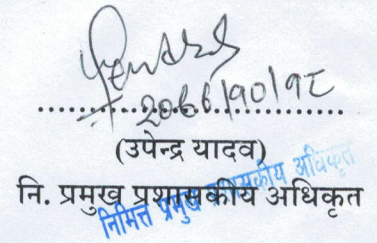 (उपेन्द्र यादव)
नि. प्रमुख प्रशासकीय अधिकृत
निमित्त प्रमुख प्रशासकीय अधिकृत